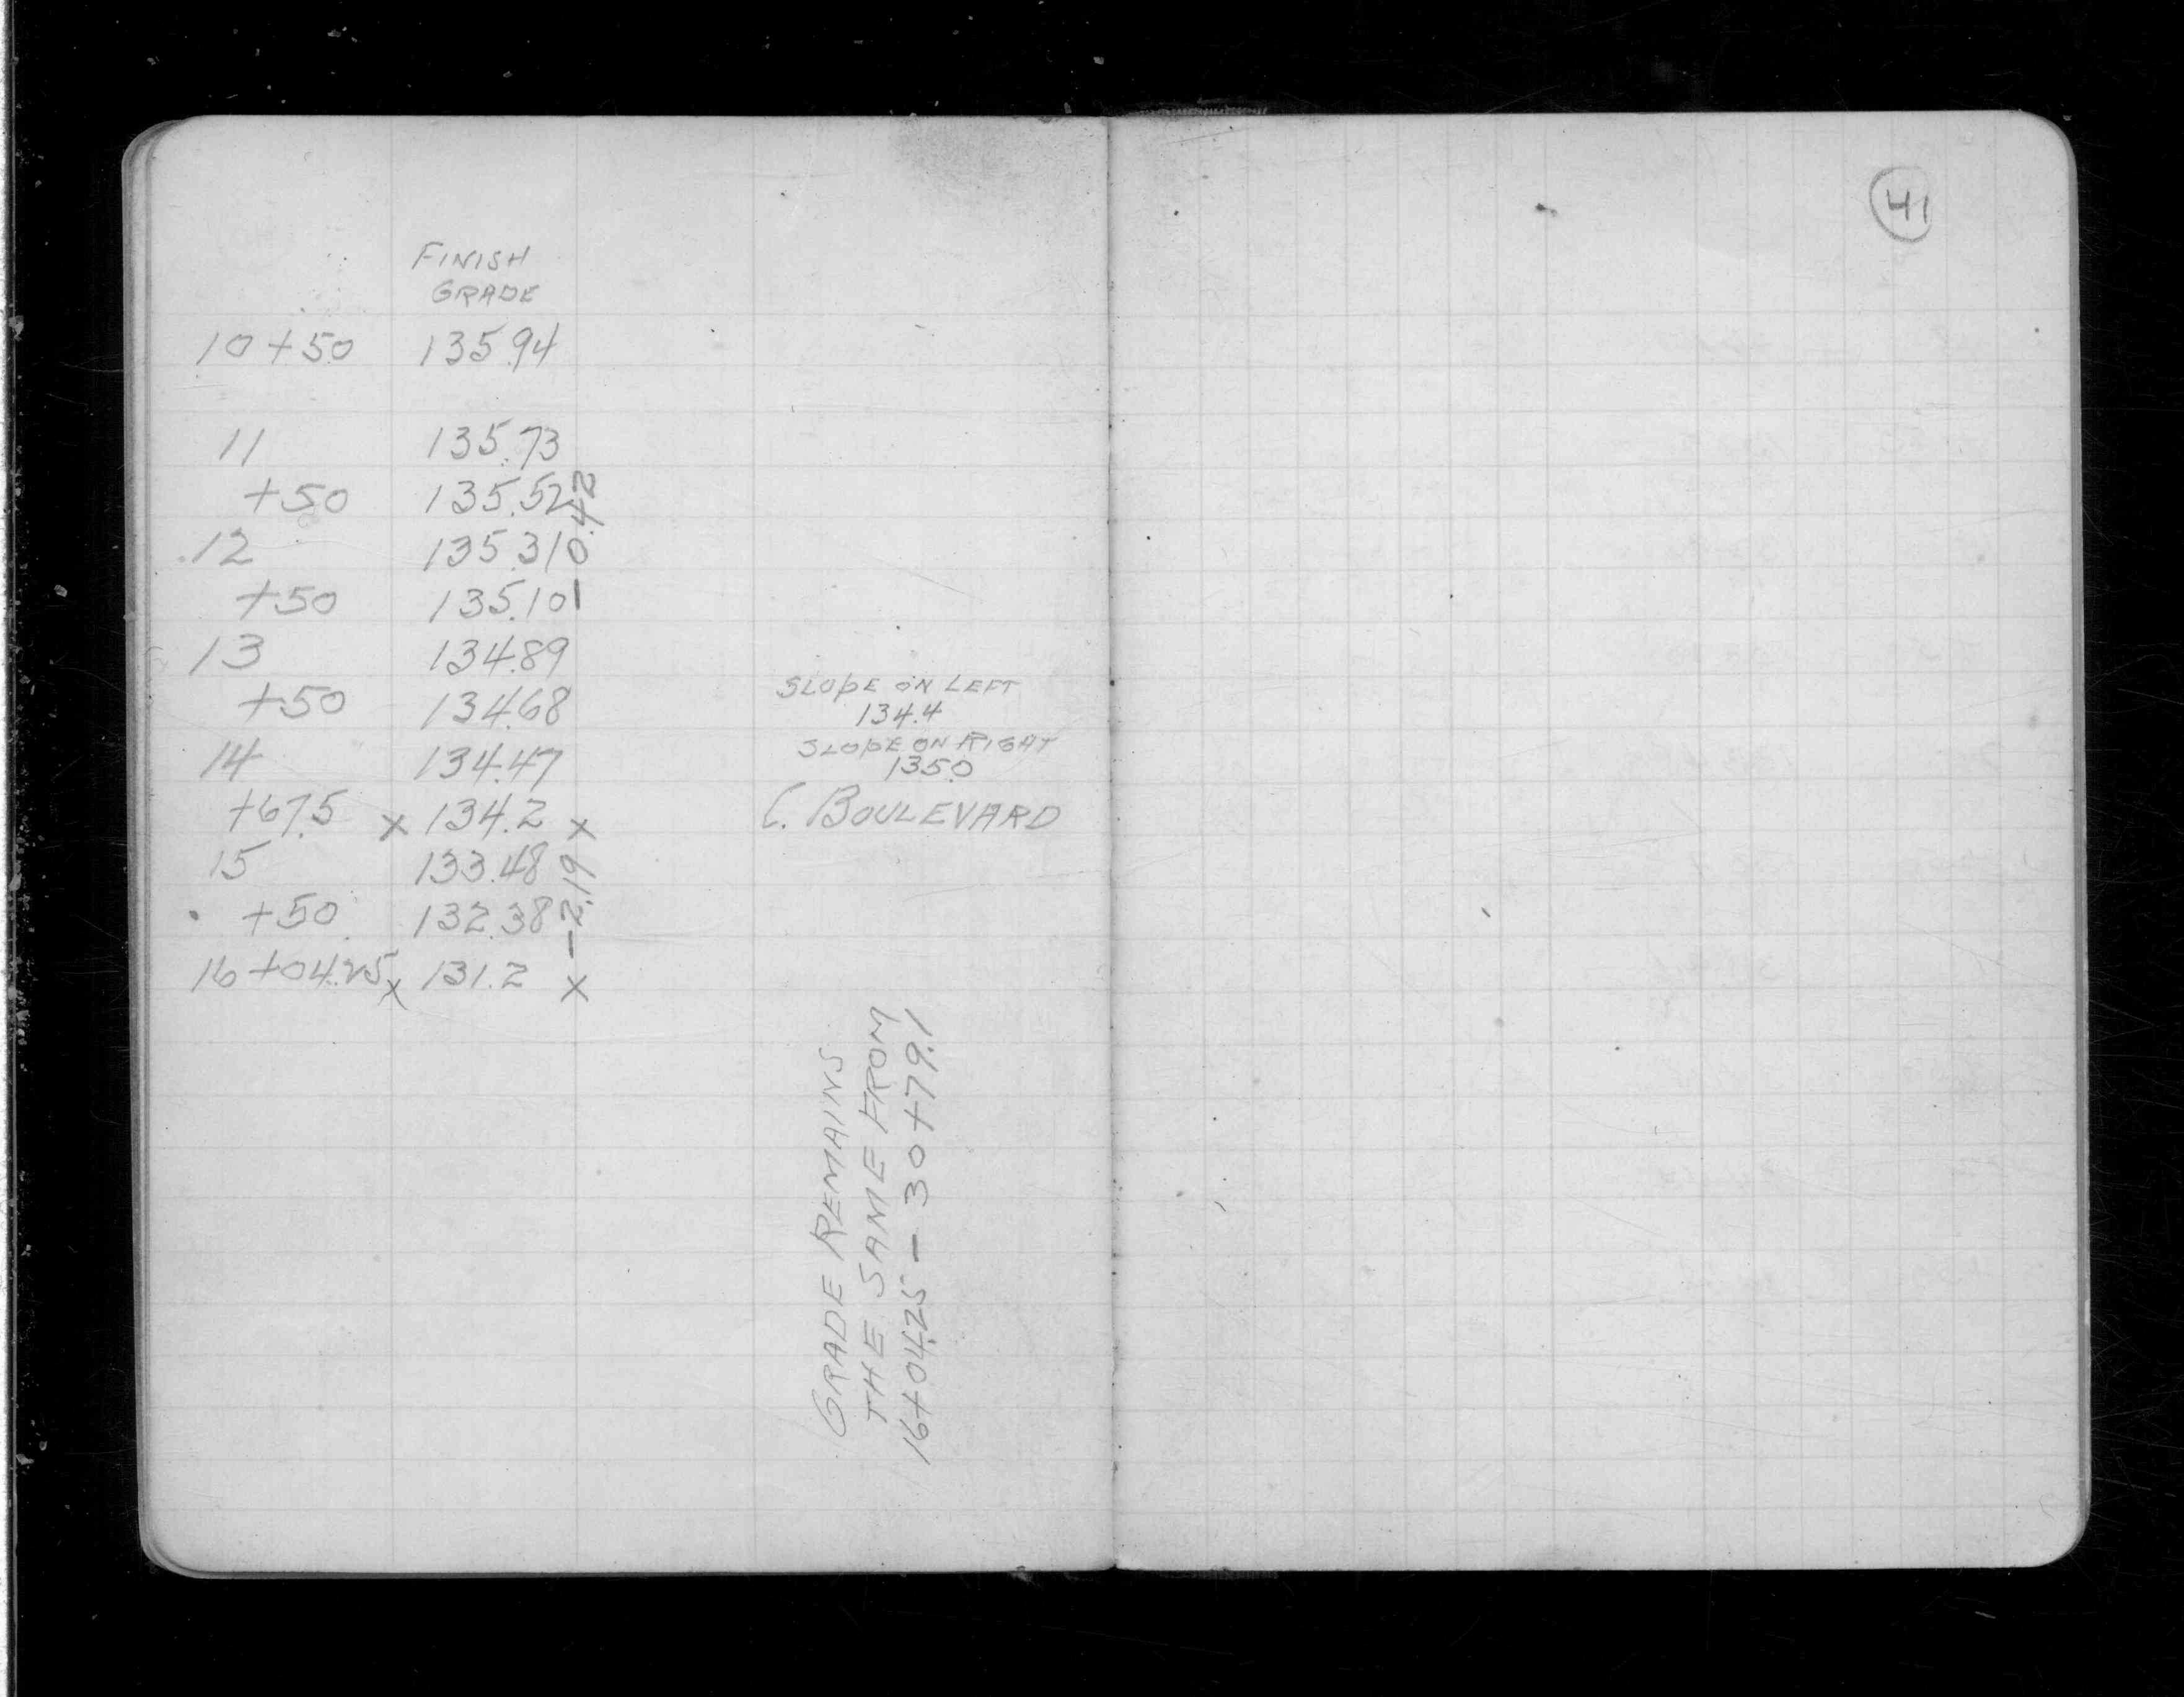 41
FINISH
GRADE
10+50 135.94
11 135.73
+50 135.52
12 135.31
+50 135.10
-0.42
13 134.89
+50 134.68
SLOPE ON LEFT
134.4
14 134.47
SLOPE ON RIGHT
135.0
+67.5 x 134.2 x
C. BOULEVARD
15 133.48
+50 132.38
-2.19
16+04.25 x 131.2 x
GRADE REMAINS
THE SAME FROM
16+04.25 - 30+79.1